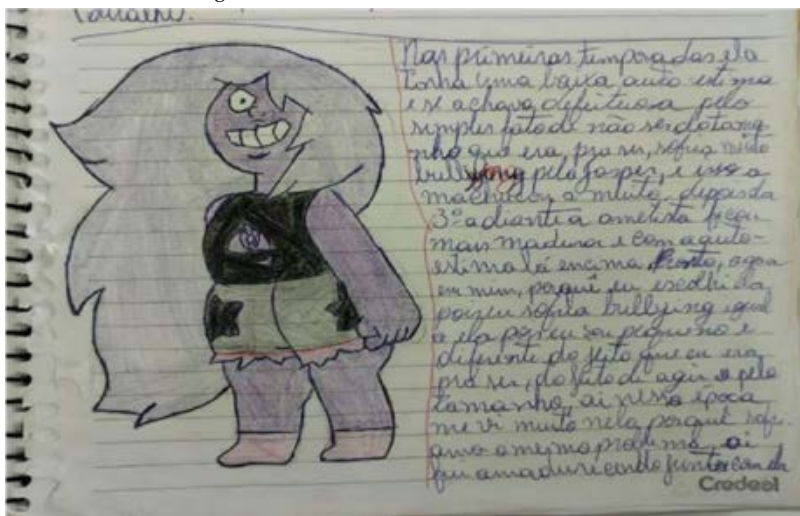 Nas primeiras temporadas ela
tinha uma baixa auto estima
e se achava defeituosa pelo
simples fato de não ser do tama
nho que era pra ser, sofria muito
bullying pela Jasper, e isso a
machucava muito, depois da
3º adiante a ametista ficou
mais madura e com a auto-
estima lá encima Pronto, agora
em mim, porquê eu escolhi ela
pois eu sofria bullying igual
a ela pois eu sou pequeno e
diferente do jeito que eu era
pra ser, do jeito de agir e pelo
tamanho, ai nessa época
me vi muito nela porquê sofri-
amo o mesmo problema, ai
fui amadurecendo junto com ela
Credeal